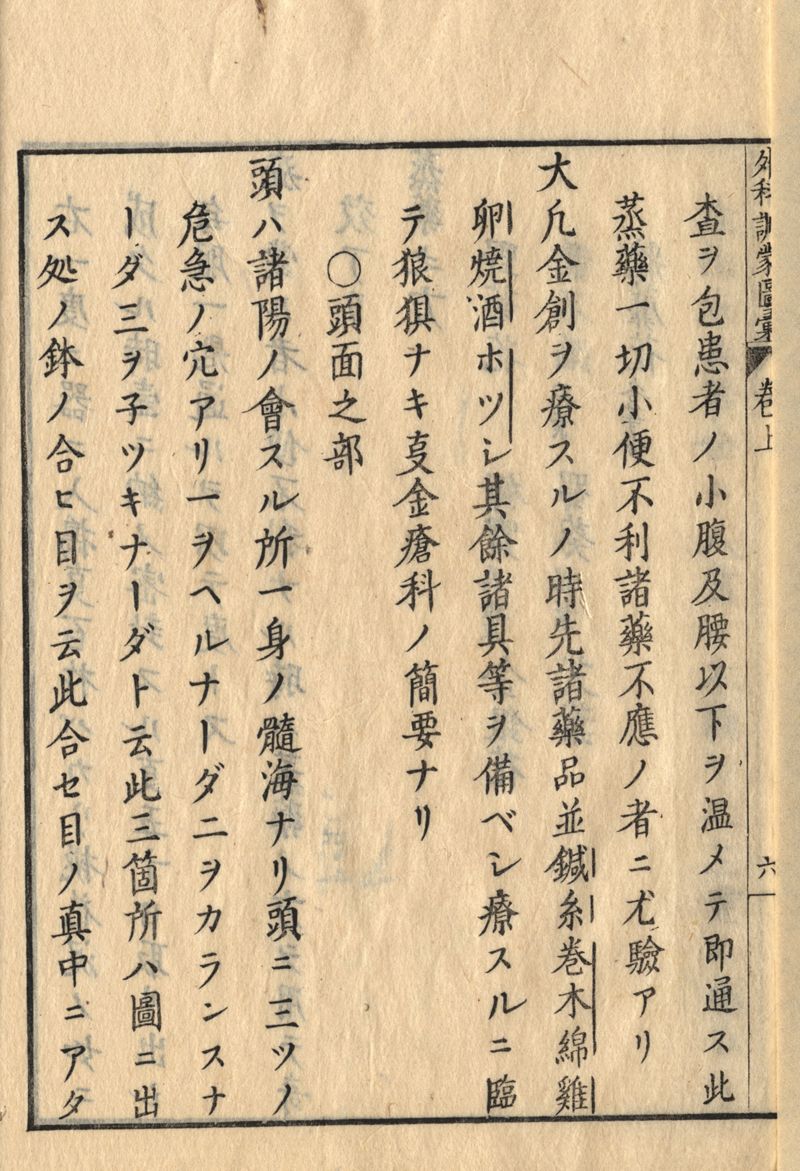 外科訓蒙圖彙 卷上 六
査ヲ包患者ノ小腹及腰以下ヲ温メテ即通ス此
蒸藥一切小便不利諸藥不應ノ者ニ尤驗アリ
大凡金創ヲ療スルノ時先諸藥品並鍼糸巻木綿雞
卵焼酒ホツシ其餘諸具等ヲ備ベシ療スルニ臨
テ狼狽ナキ㕝金瘡科ノ簡要ナリ
〇頭面之部
頭ハ諸陽ノ會スル所一身ノ髓海ナリ頭ニ三ツノ
危急ノ穴アリ一ヲヘルナーダ二ヲカランスナ
ーダ三ヲ子ツキナーダト云此三箇所ハ圖ニ出
ス処ノ鉢ノ合ヒ目ヲ云此合セ目ノ真中ニアタ